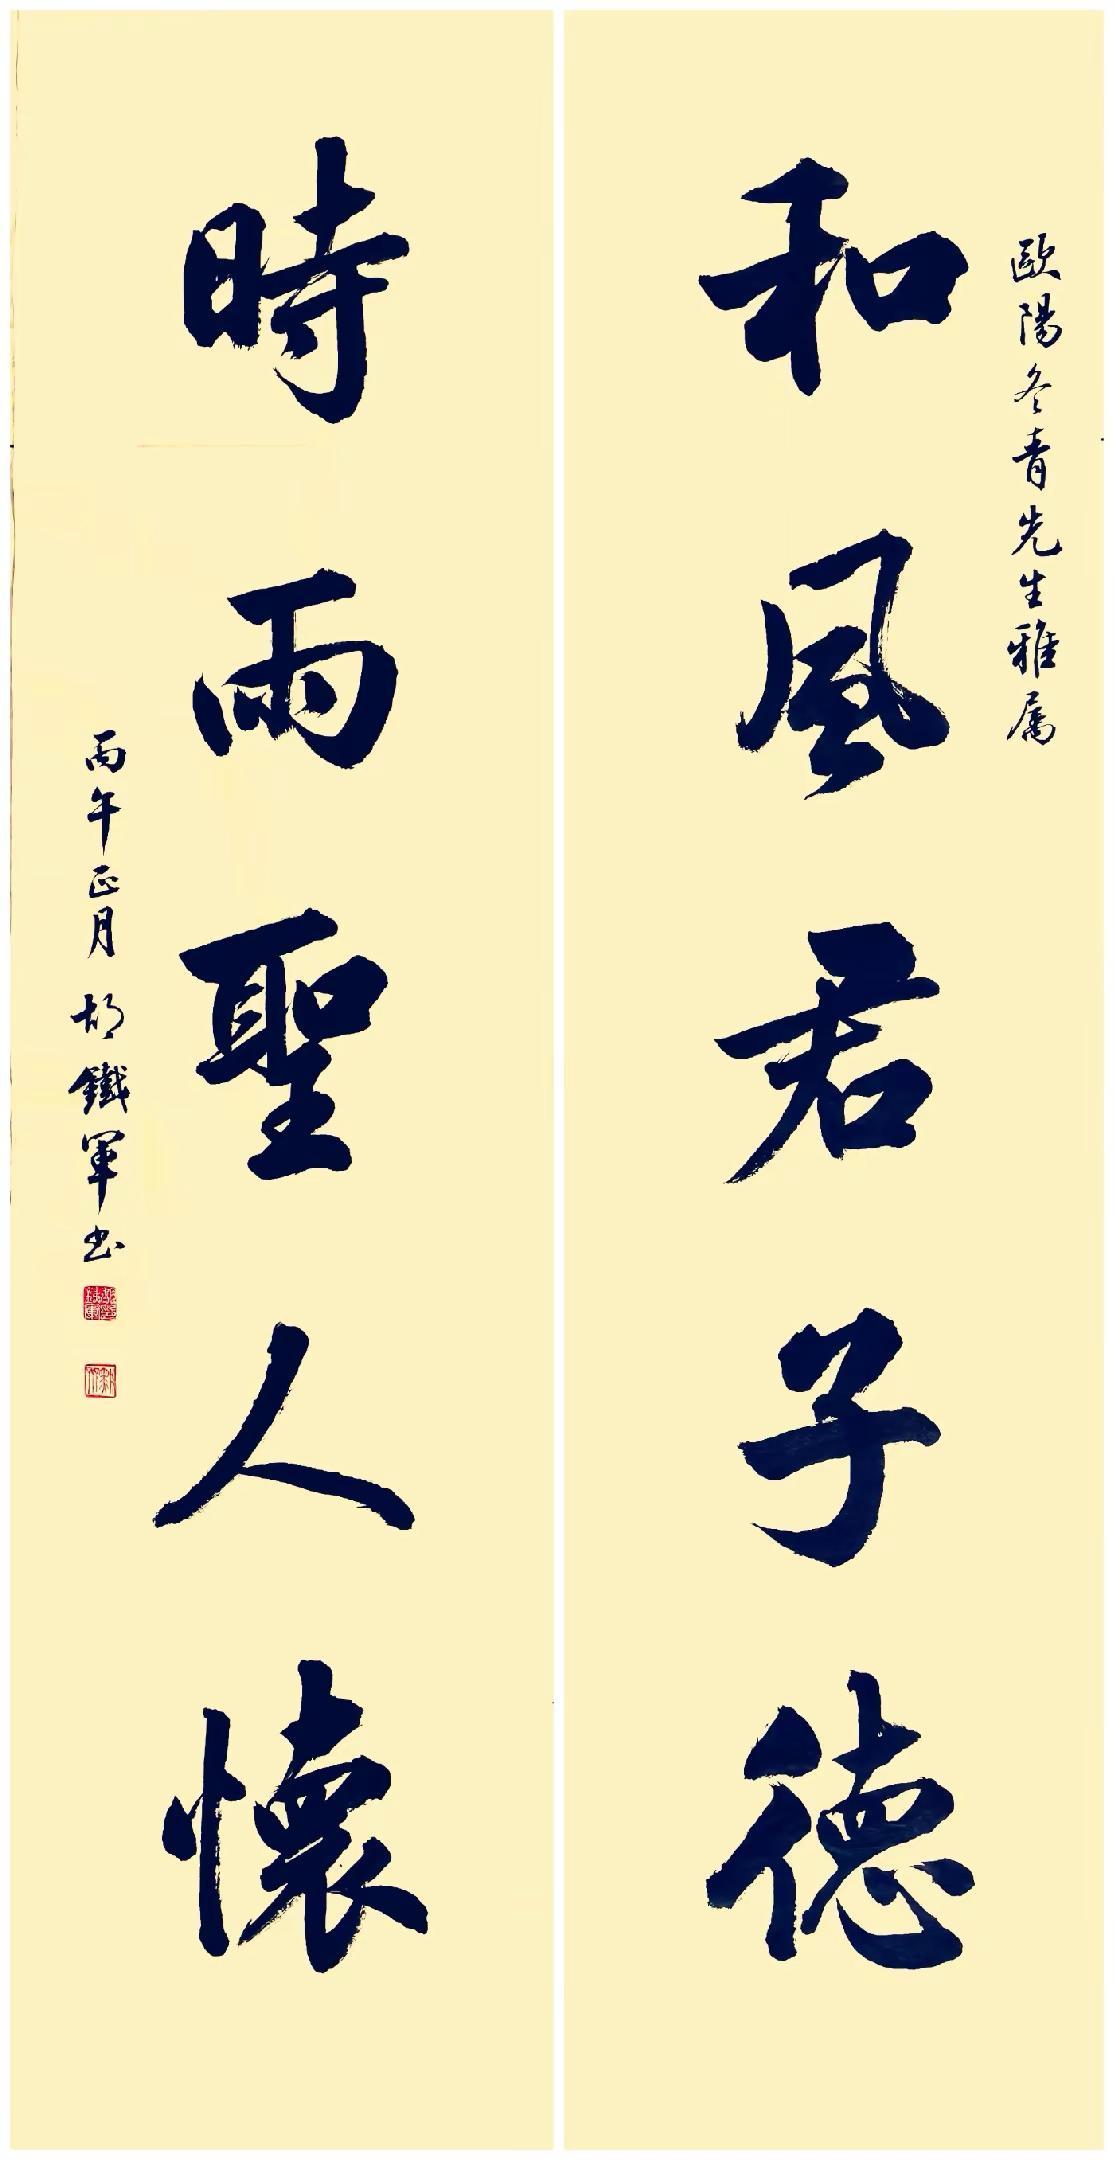 歐陽冬青先生雅属
和風君子德
時雨聖人懷
丙午正月胡鐵軍书